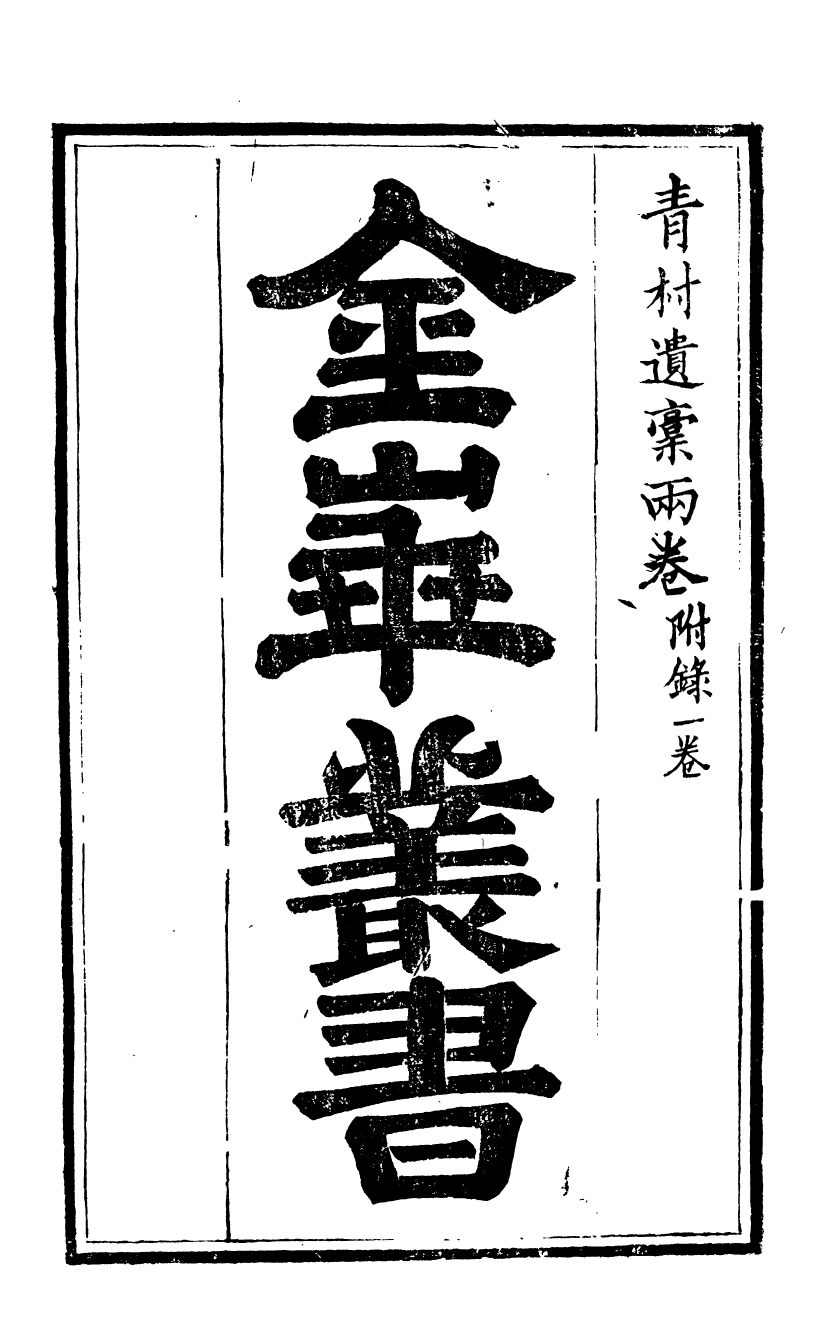 青村遺稾兩卷附錄一卷
金崋叢書